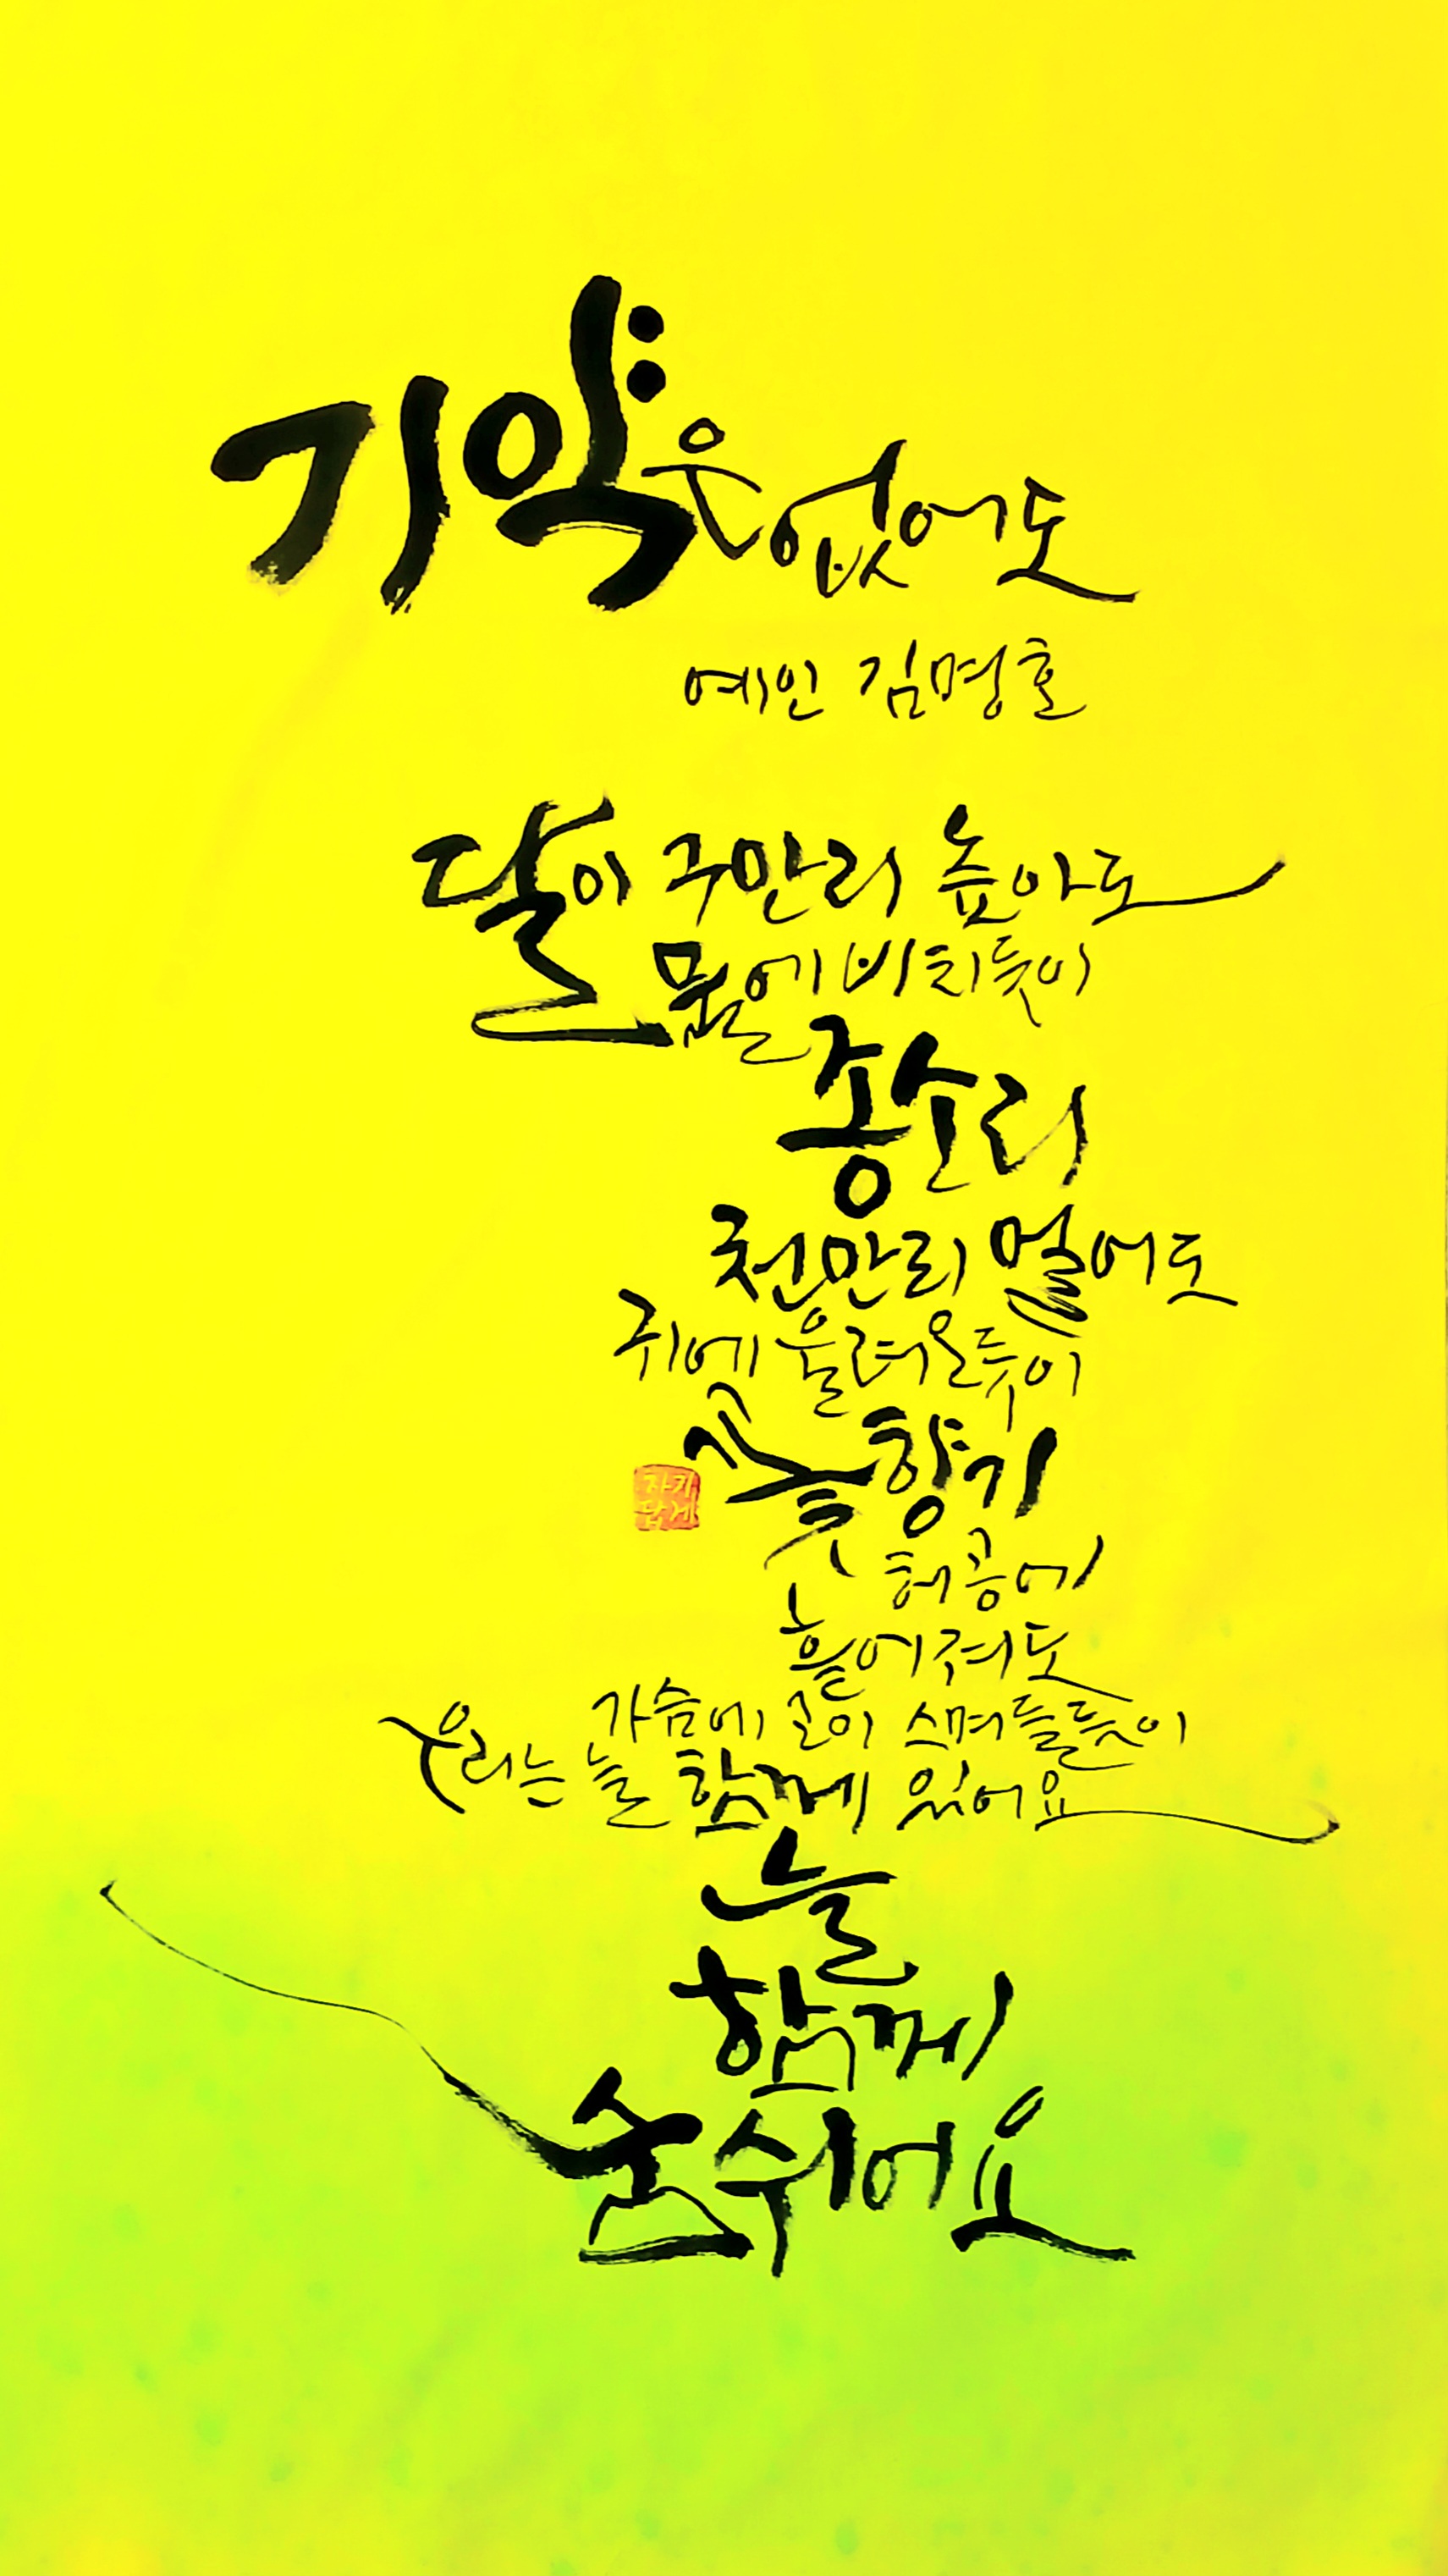 기약은 없어도
예인 김명호
달이 구만리 높아도
뭍에 비치듯이
종소리
천만리 멀어도
귀에 울려온듯이
꽃향기
자기
답게
허공에
흩어져도
가슴에 고이 스며들듯이
우리는 늘 함께 있어요
늘
함께
숨쉬어요